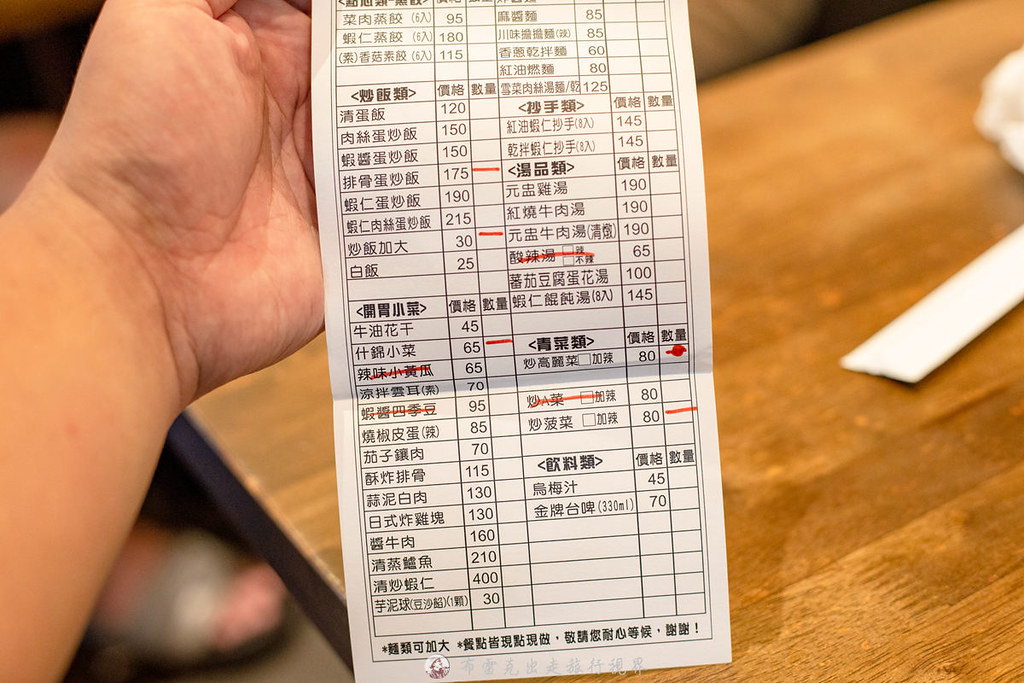 <點心類-蒸餃> 價格 數量
菜肉蒸餃(6入) 95
蝦仁蒸餃(6入) 180
(素)香菇素餃(6入) 115
<炒飯類> 價格 數量
清蛋飯 120
肉絲蛋炒飯 150
蝦醬蛋炒飯 150
排骨蛋炒飯 175
蝦仁蛋炒飯 190
蝦仁肉絲蛋炒飯 215
炒飯加大 30
白飯 25
<開胃小菜> 價格 數量
牛油花干 45
什錦小菜 65
辣味小黃瓜 65
涼拌雲耳(素) 70
蝦醬四季豆 95
燒椒皮蛋(辣) 85
茄子鑲肉 70
酥炸排骨 115
蒜泥白肉 130
日式炸雞塊 130
醬牛肉 160
清蒸鱸魚 210
清炒蝦仁 400
芋泥球(豆沙餡)(1顆) 30
炸醬麵
麻醬麵 85
川味擔擔麵(辣) 85
香蔥乾拌麵 60
紅油燃麵 80
雪菜肉絲湯麵/乾 125
<抄手類> 價格 數量
紅油蝦仁抄手(8入) 145
乾拌蝦仁抄手(8入) 145
<湯品類> 價格 數量
元盅雞湯 190
紅燒牛肉湯 190
元盅牛肉湯(清燉) 190
酸辣湯 □辣 □不辣 65
蕃茄豆腐蛋花湯 100
蝦仁餛飩湯(8入) 145
<青菜類> 價格 數量
炒高麗菜□加辣 80
炒A菜 □加辣 80
炒菠菜 □加辣 80
<飲料類> 價格 數量
烏梅汁 45
金牌台啤(330ml) 70
*麵類可加大 *餐點皆現點現做，敬請您耐心等候，謝謝！
布雷克出走旅行視界